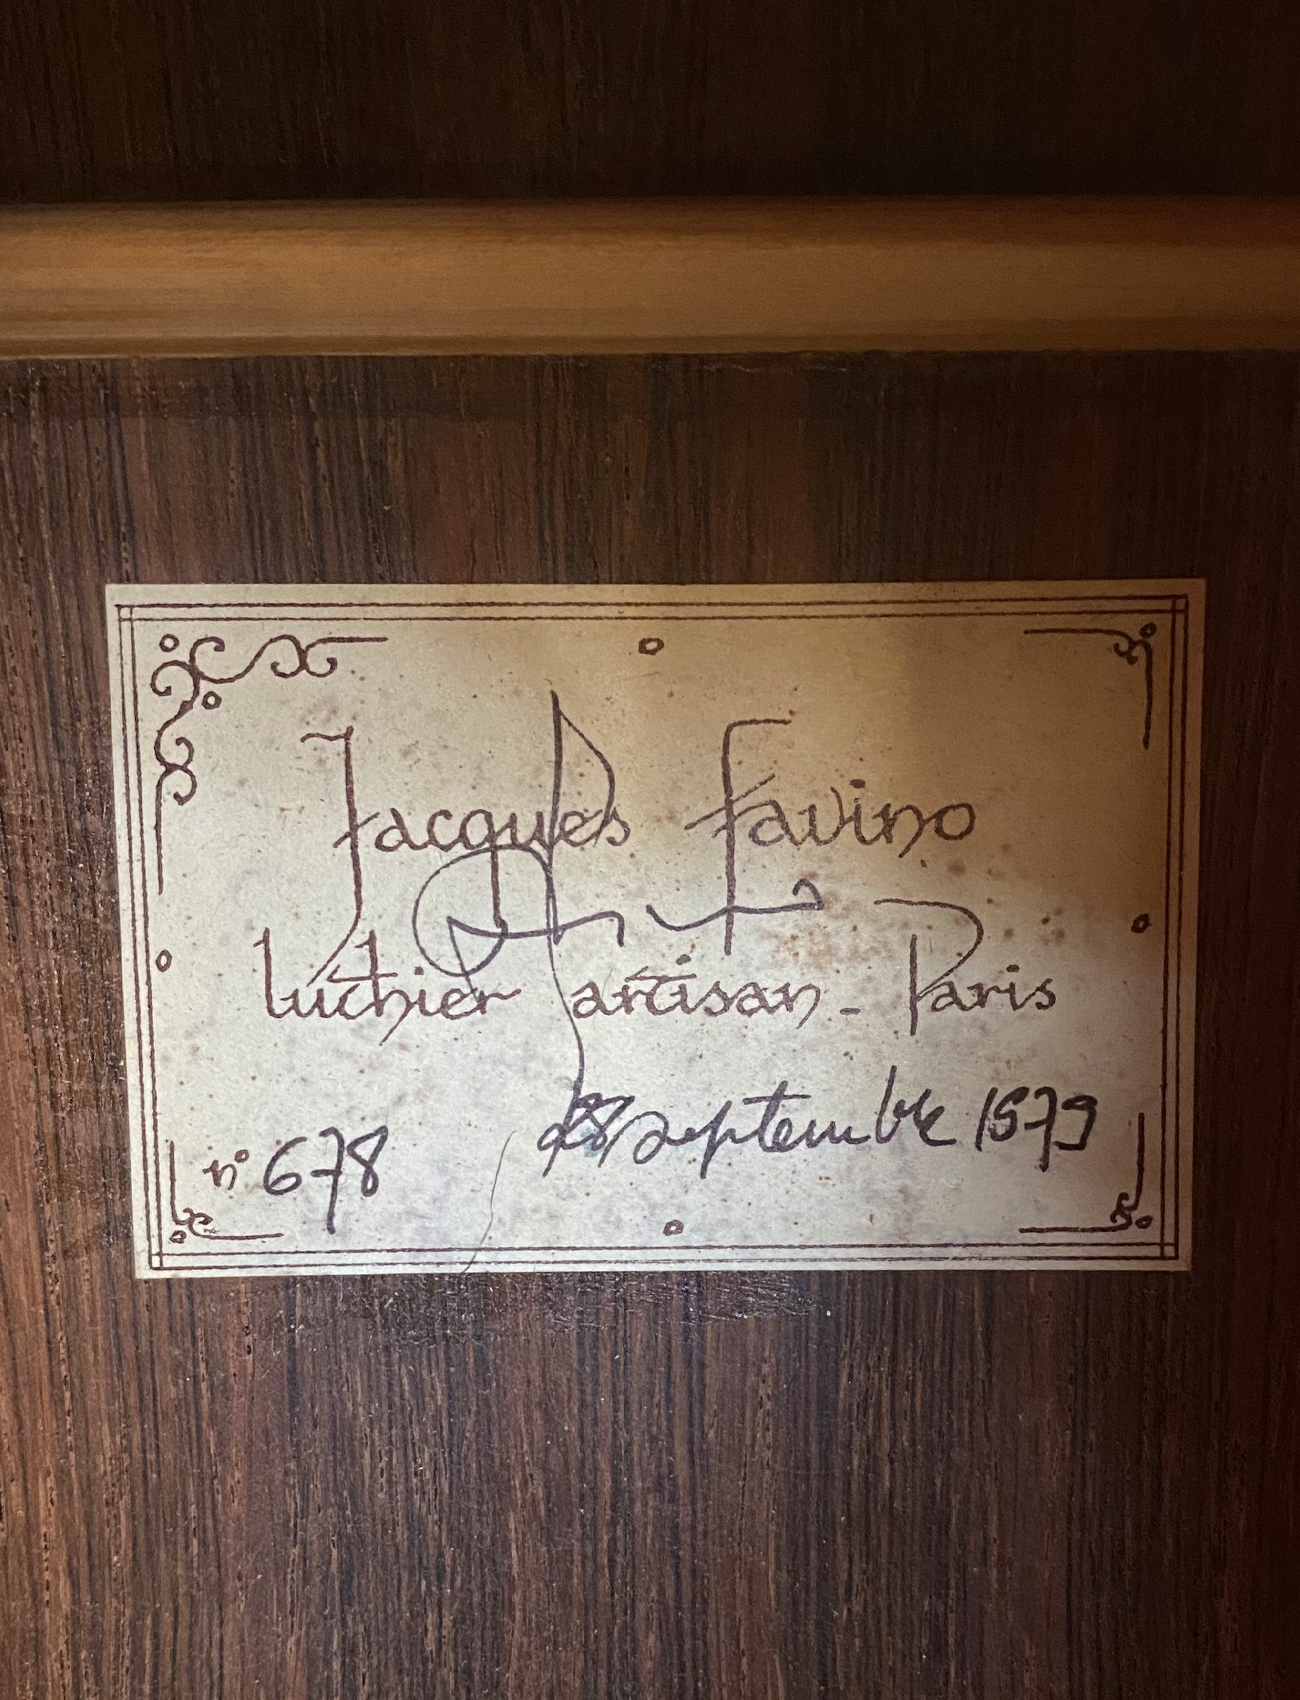 Jacques Favino
luthier artisan - Paris
n° 678
septembre 1979